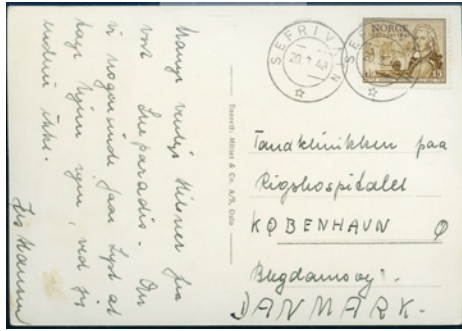 Mange venlige Hilsner fra
vort Sneparadis. Om
vi nogensinde faar Lyst at
tage hjem igen, ved jeg
endnu ikke.
Eneret: Mittet & Co. A/S, Oslo
SEFRIVATN
20.3.48
SEFRIVATN
NORGE
15
Tandklinikken paa
Rigshospitalet
KØBENHAVN Ø
Blegdamsvej.
DANMARK.